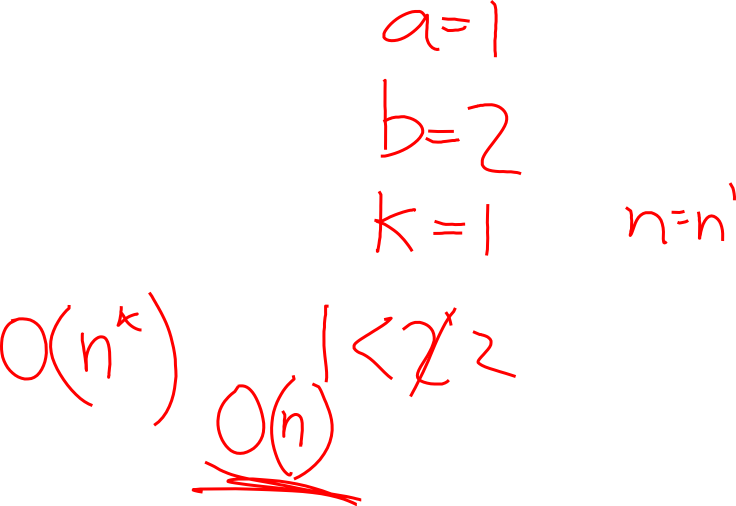 a=1
b=2
k=1 n=n¹
O(n^k) 1<2 2
O(n)